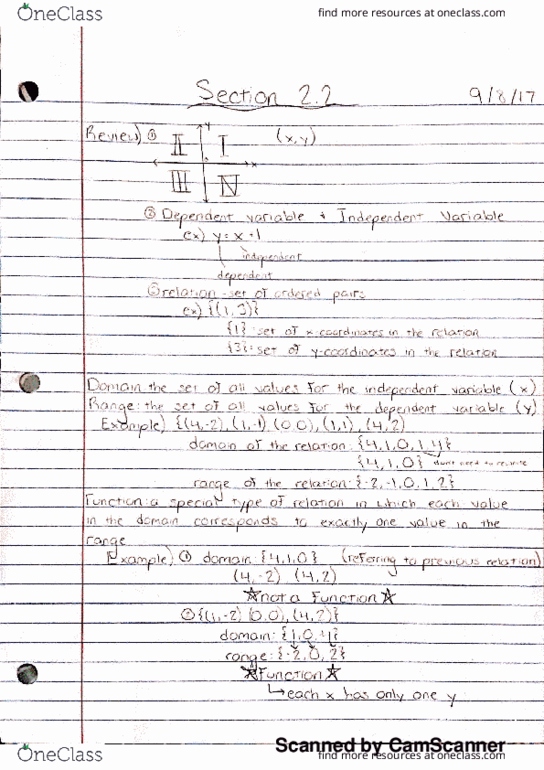 OneClass
find more resources at oneclass.com
Section 2.2
9/8/17
Review) ① II I (x,y)
y
x
III IV
② Dependent variable + Independent Variable
ex) y = x +1
independent
dependent
③ relation - set of ordered pairs
ex) {(1,3)}
{1} : set of x-coordinates in the relation
{3} : set of y-coordinates in the relation
Domain: the set of all values for the independent variable (x)
Range: the set of all values for the dependent variable (y)
Example) {(4,-2), (1,-1), (0,0), (1,1), (4,2)
domain of the relation: {4,1,0,1,4}
{4,1,0} don't need to rewrite
range of the relation: {-2,-1,0,1,2}
Function: a special type of relation in which each value
in the domain corresponds to exactly one value in the
range
Example) ① domain {4,1,0} (referring to previous relation)
(4,-2) (4,2)
☆not a Function☆
② {(1,-2) (0,0), (4,2)}
domain: {1,0,4}
range: {-2,0,2}
☆Function☆
↳each x has only one y
Scanned by CamScanner
OneClass
find more resources at oneclass.com